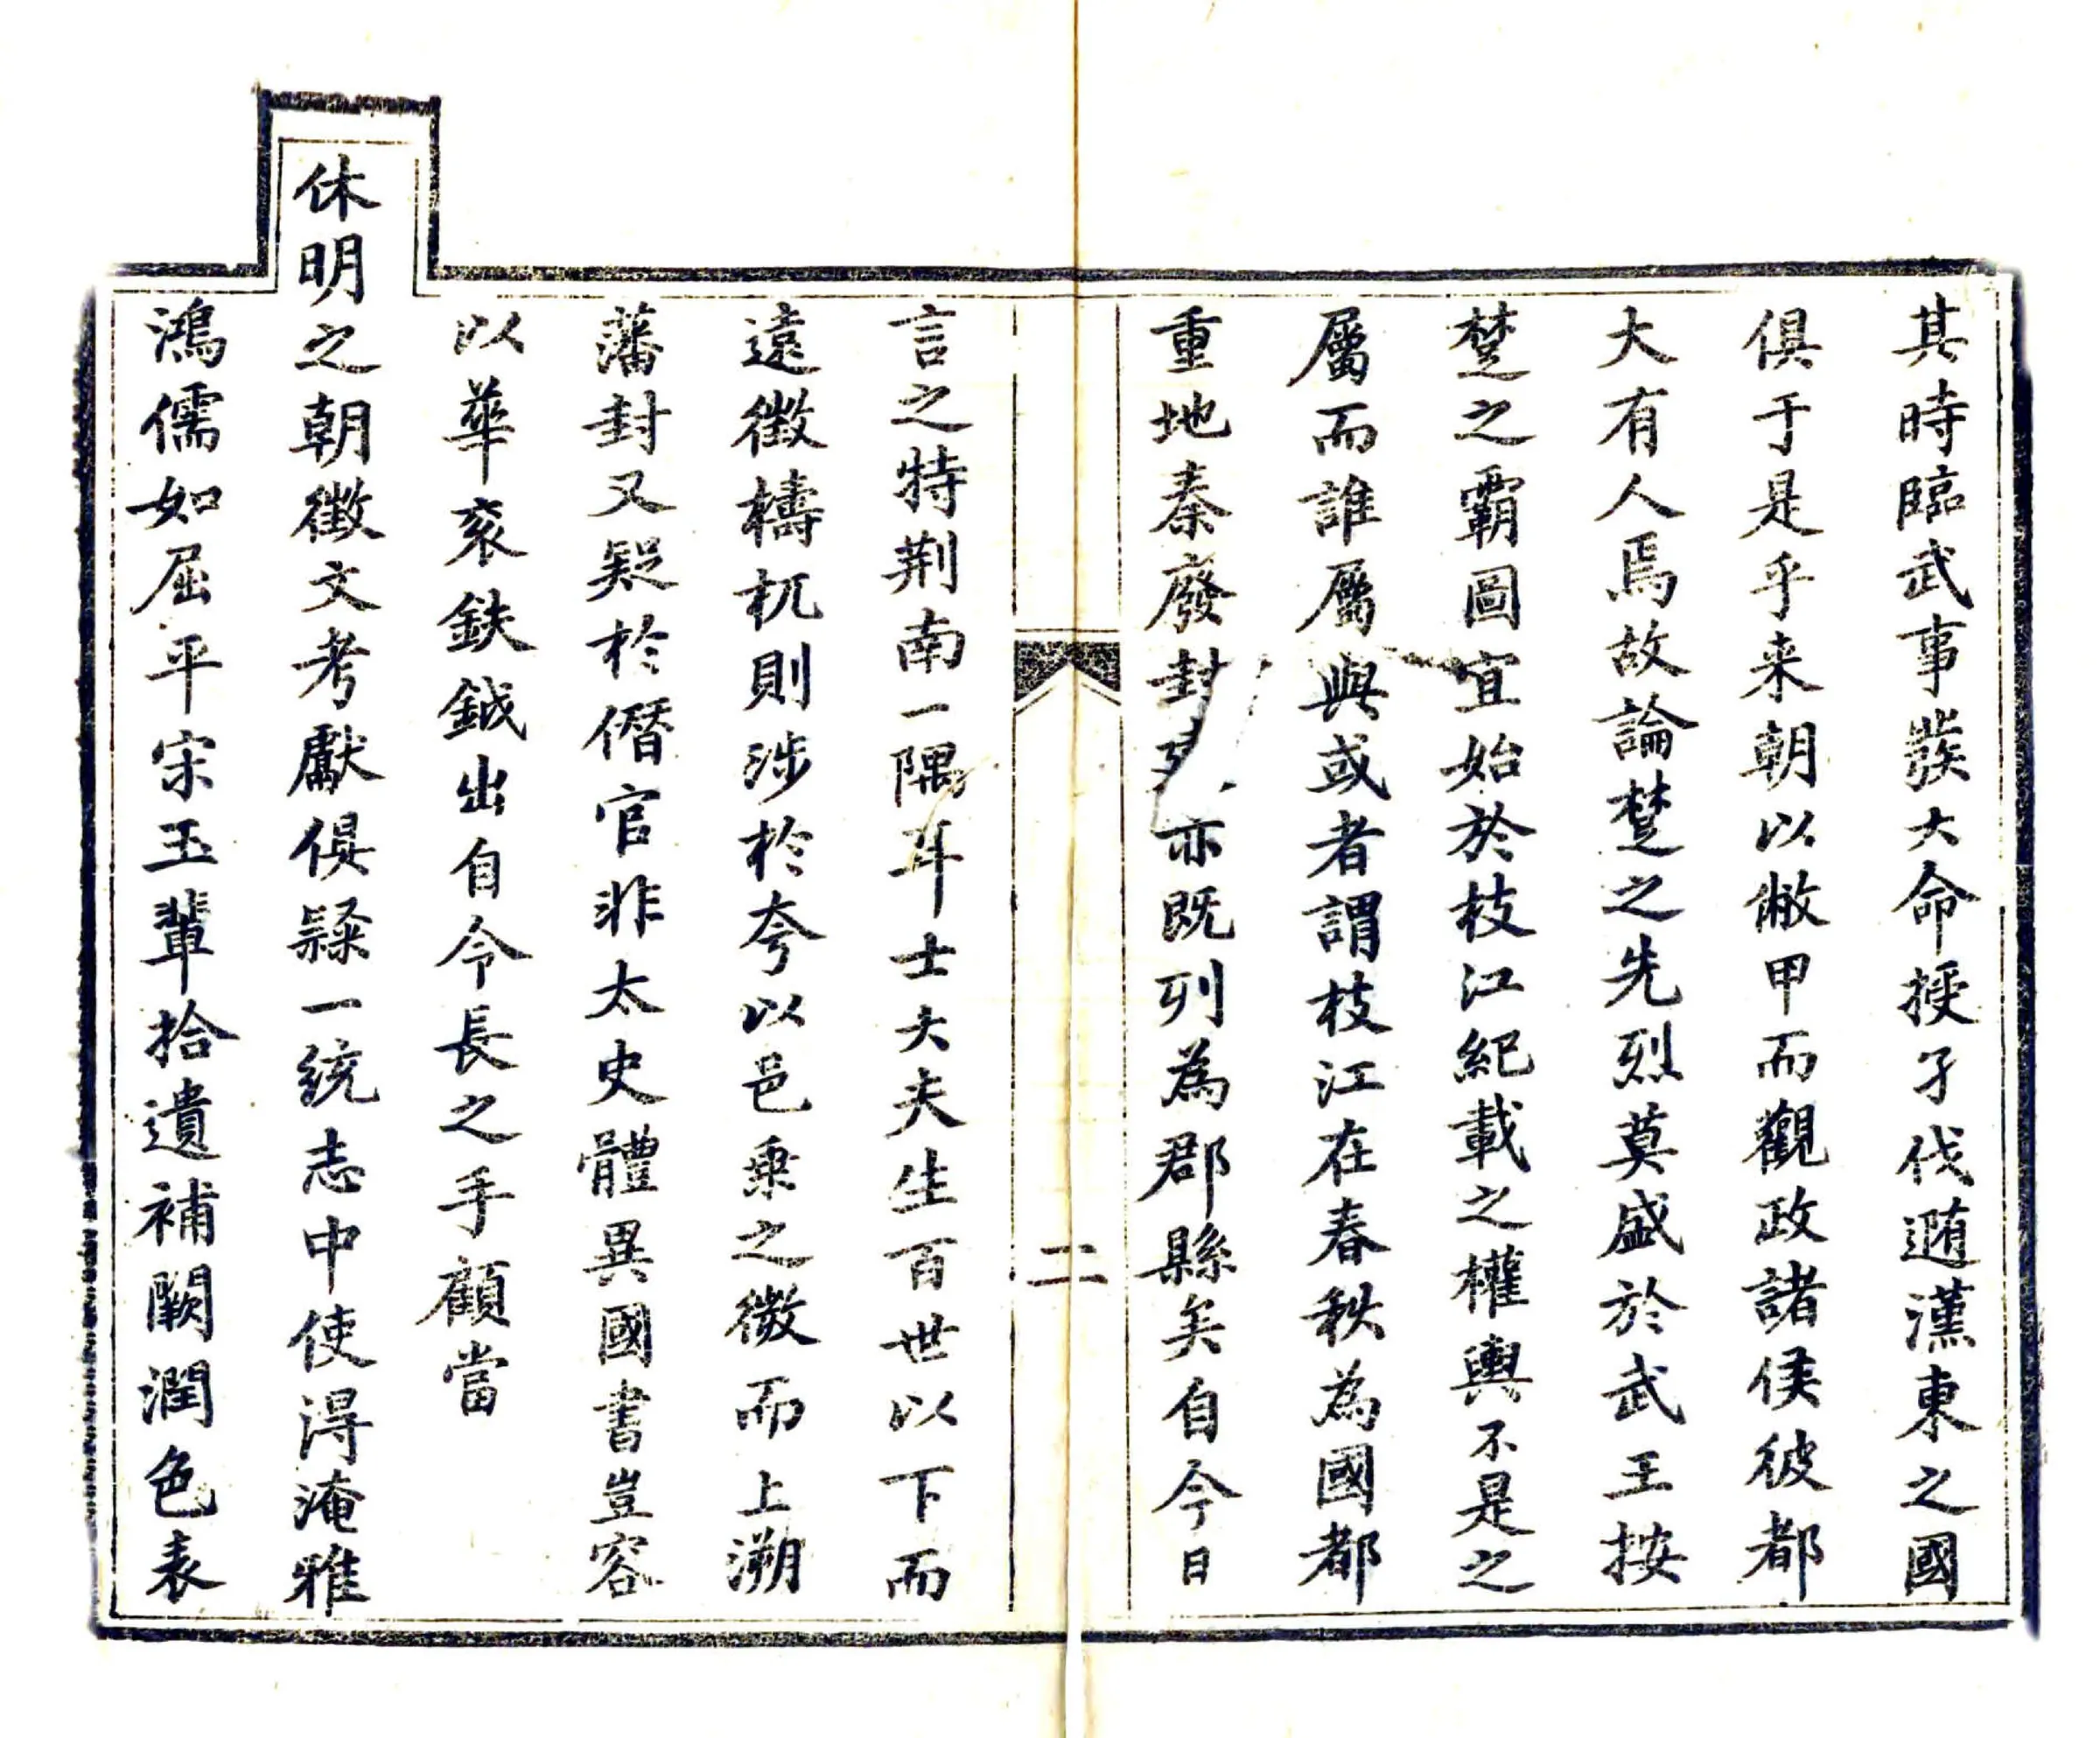 其時臨武事發大命授孑伐遁漢東之國
俱于是乎来朝以敝甲而觀政諸侯彼都
大有人焉故論楚之先烈莫盛於武王按
楚之霸圖宜始於枝江紀載之權輿不是之
屬而誰屬與或者謂枝江在春秋為國都
重地秦廢封亦既列為郡縣矣自今日
二
言之特荆南一隅耳士大夫生百世以下而
遠徵檮杌則涉於夸以邑乘之微而上溯
藩封又疑於僭官非太史體異國書豈容
以華衮鈇鉞出自令長之手顧當
休明之朝徵文考獻俱隸一統志中使淂淹雅
鴻儒如屈平宋玉輩拾遺補闕潤色表